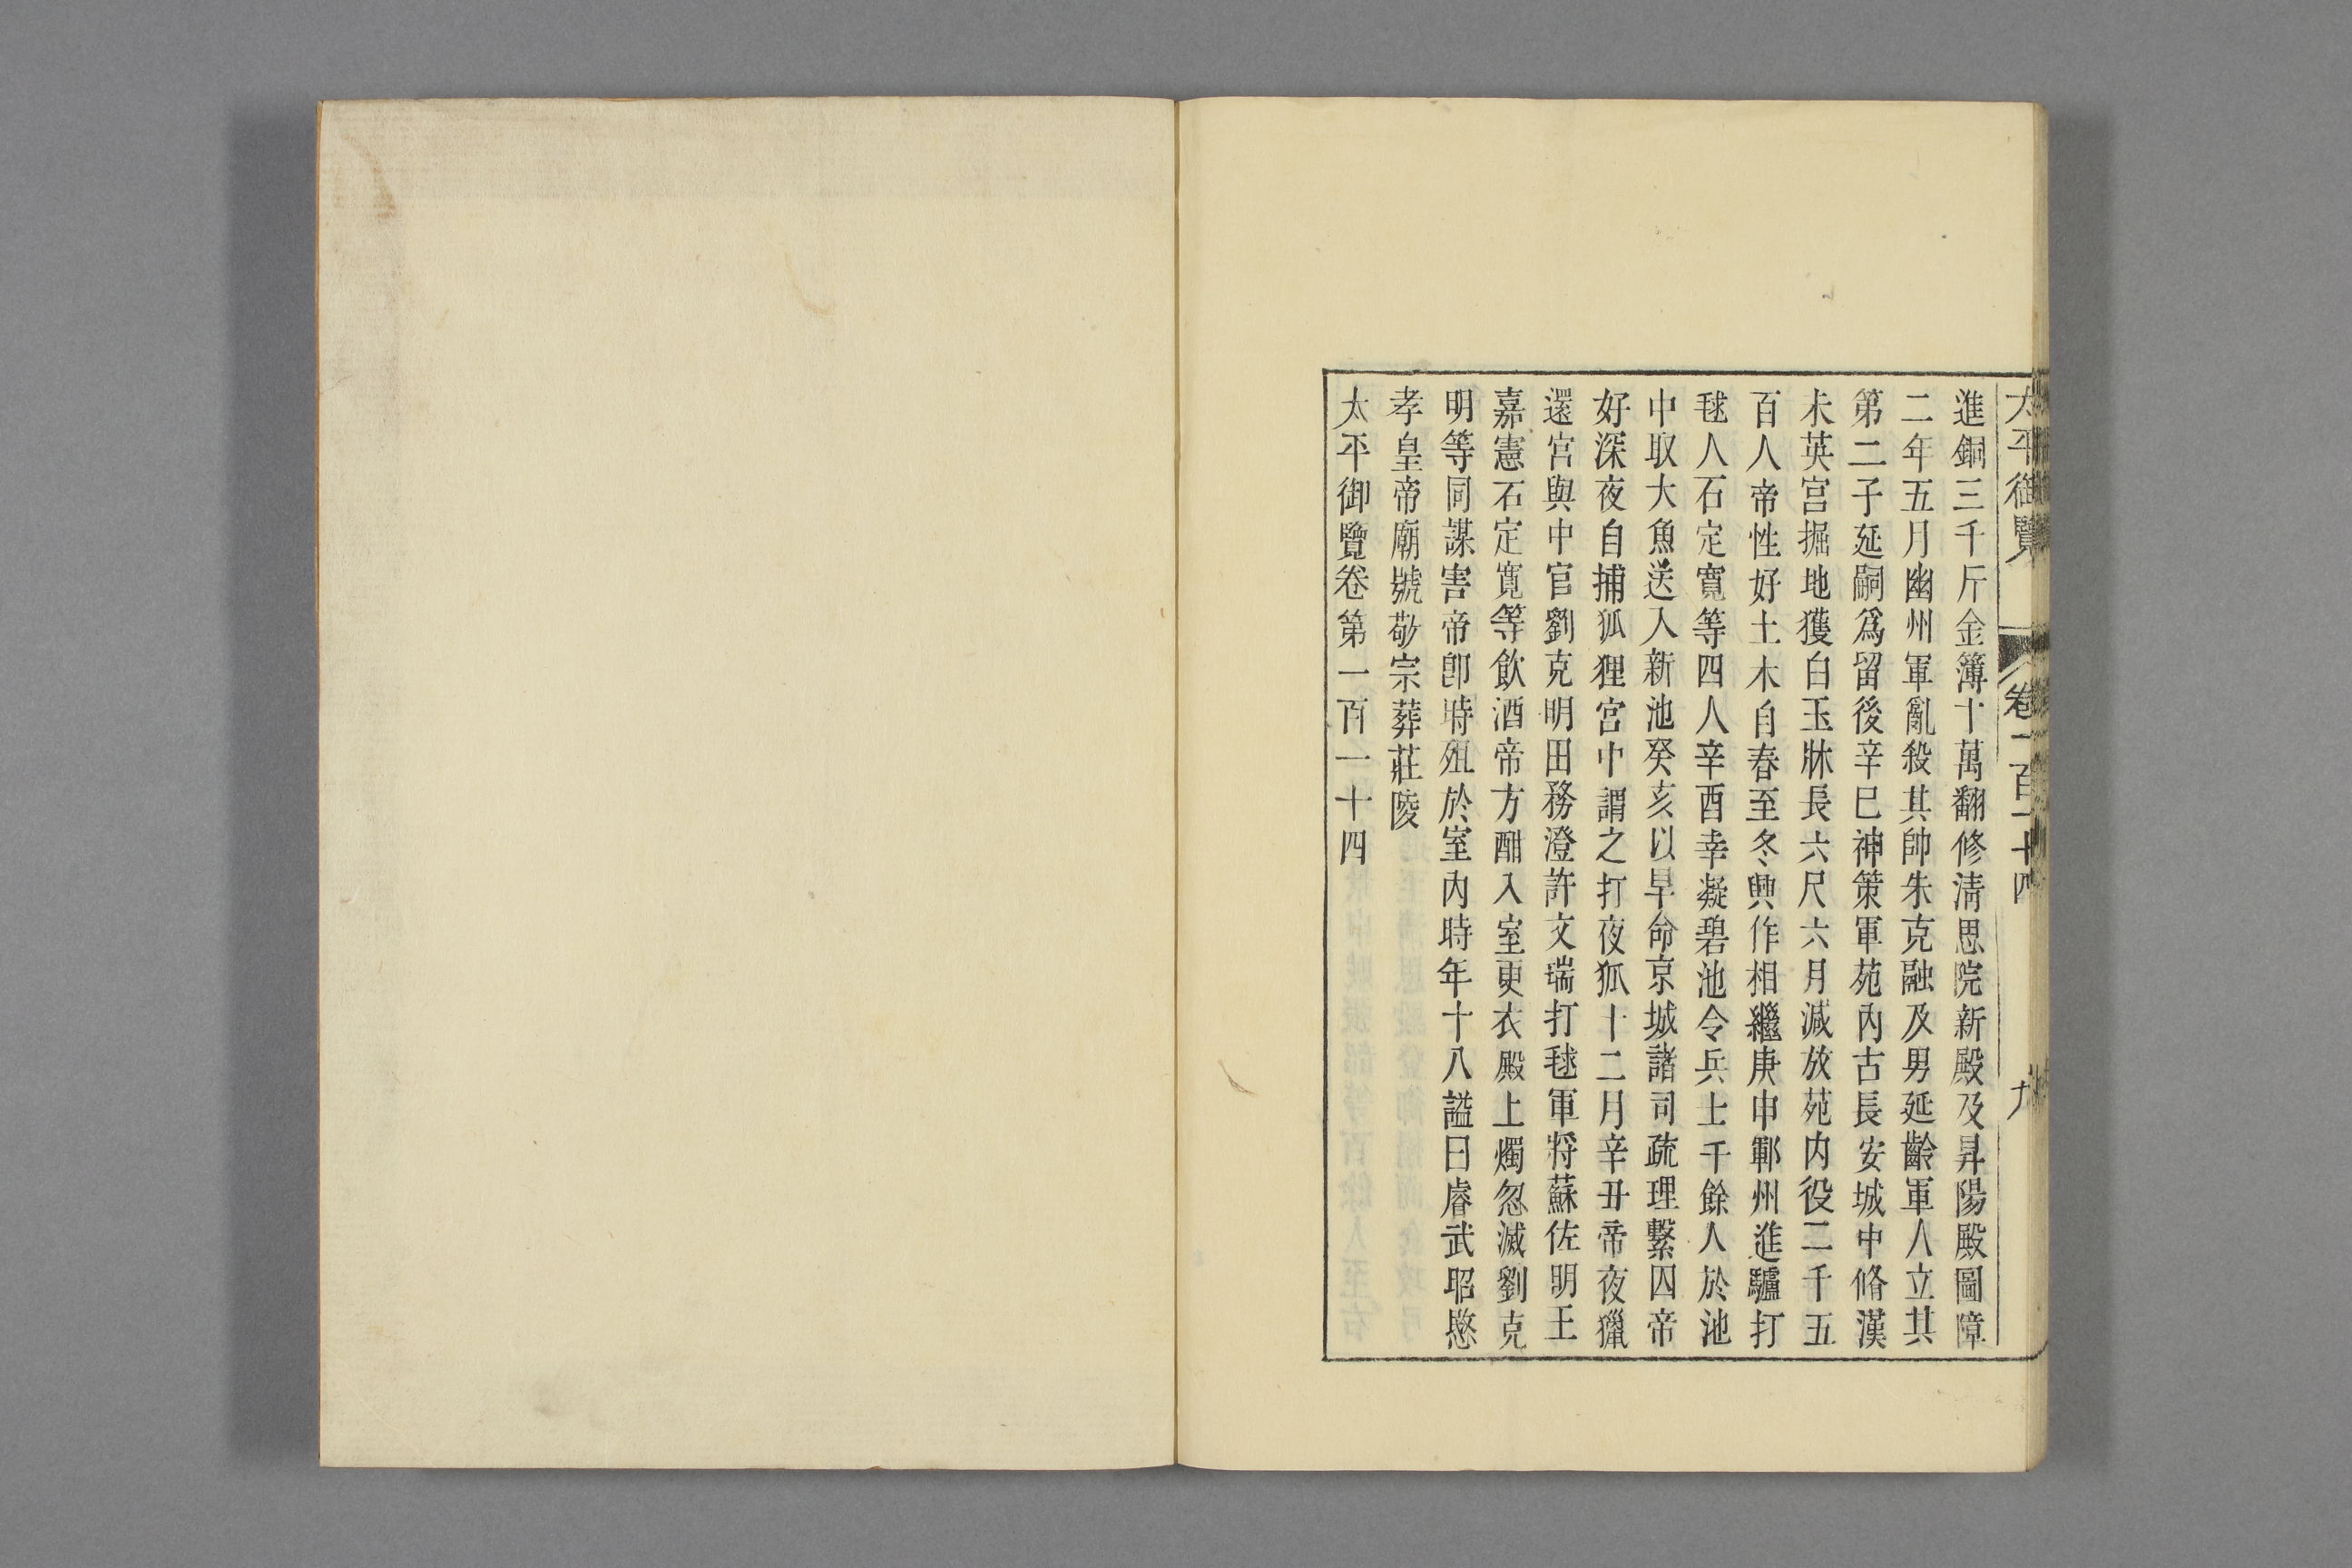 太平御覽 卷一百一十四 九
進銅三千斤金簿十萬翻修淸思院新殿及昇陽殿圖障
二年五月幽州軍亂殺其帥朱克融及男延齡軍人立其
第二子延嗣爲留後辛巳神策軍苑內古長安城中脩漢
未英宮掘地獲白玉牀長六尺六月減放苑内役二千五
百人帝性好土木自春至冬興作相繼庚申鄆州進驢打
毬人石定寬等四人辛酉幸凝碧池令兵士千餘人於池
中取大魚送入新池癸亥以旱命京城諸司疏理繫囚帝
好深夜自捕狐狸宮中謂之打夜狐十二月辛丑帝夜獵
還宮與中官劉克明田務澄許文瑞打毬軍將蘇佐明王
嘉憲石定寬等飲酒帝方酣入室更衣殿上燭忽滅劉克
明等同謀害帝卽時殂於室內時年十八謚曰睿武昭愍
孝皇帝廟號敬宗葬莊陵
太平御覽卷第一百一十四